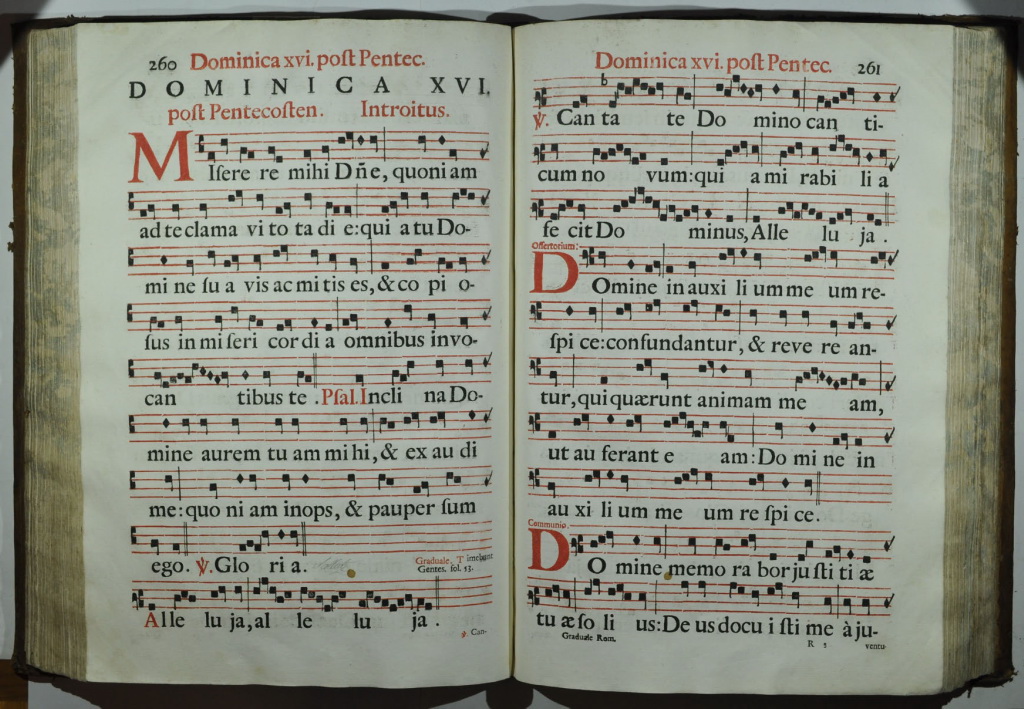 260 Dominica xvi. poſt Pentec.
DOMINICA XVI.
poſt Pentecoſten. Introitus.
MIſere re mihi Dñe, quoni am
ad te clama vi to ta di e: qui a tu Do-
mi ne ſu a vis ac mi tis es, & co pi o-
ſus in mi ſeri cor di a omnibus invo-
can tibus te . Pſal. Incli na Do-
mine aurem tu am mi hi, & ex au di
me: quo ni am inops, & pauper ſum
ego. ℣. Glo ri a. Graduale. Timebunt
Gentes. fol. 53.
Alle lu ja, al le lu ja .
℣. Can-
Dominica xvi. poſt Pentec. 261
℣. Can ta te Do mino can ti-
cum no vum: qui a mi rabi li a
fe cit Do minus, Alle lu ja .
Offertorium:
DOmine in auxi li um me um re-
ſpi ce: confundantur, & reve re an-
tur, qui quærunt animam me am,
ut au ferant e am: Do mi ne in
au xi li um me um re ſpi ce.
Communio.
DOmine memo ra bor ju ſti ti æ
tu æ ſo li us: De us docu i ſti me à ju-
Graduale Rom. R 3 ventu-